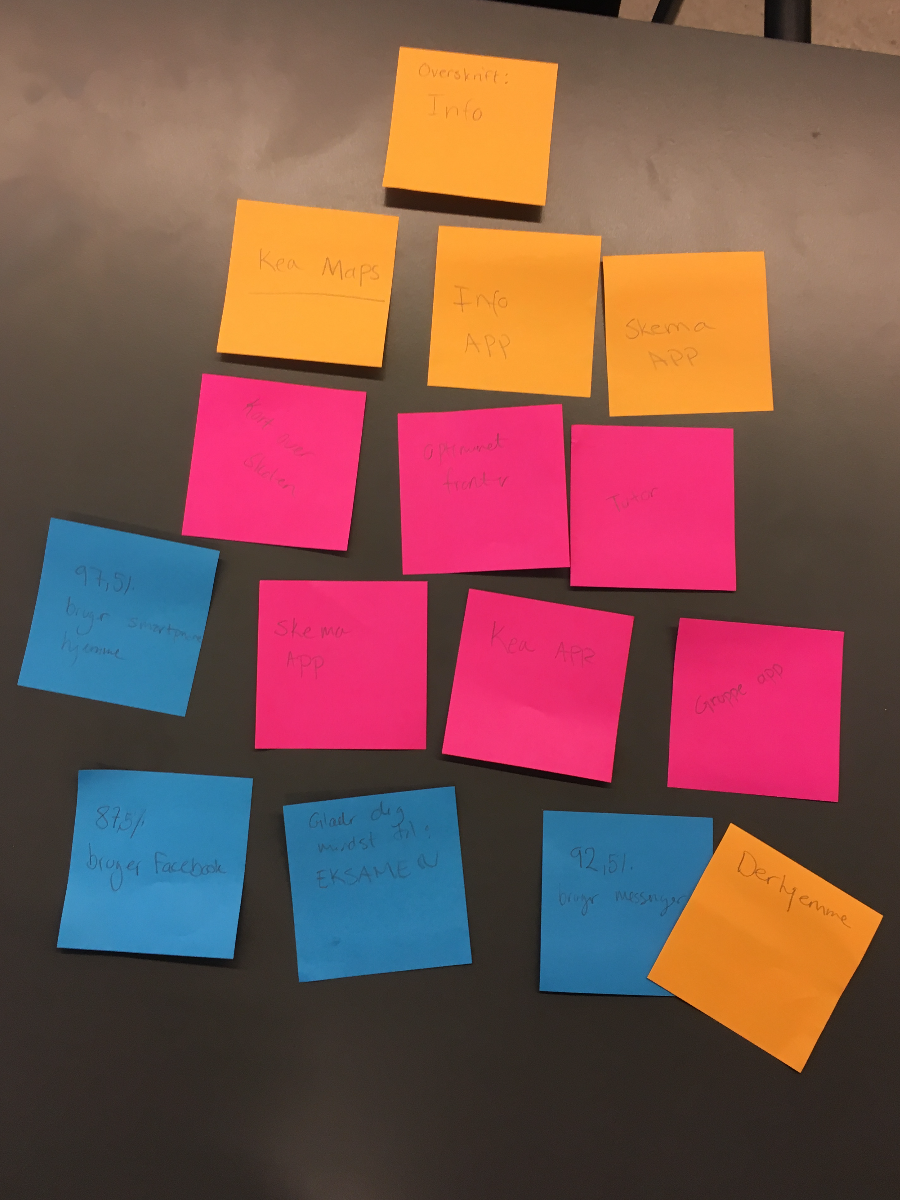 Overskrift:
Info
Kea Maps
Info
APP
Skema
APP
Kort over
Skolen
Tutor
97,5%
bruger
hjemme
Skema
APP
Kea APP
Gruppe app
87,5%
bruger Facebook
Glæder dig
mindst til:
EKSAMEN
92,5%
bruger messenger
Derhjemme